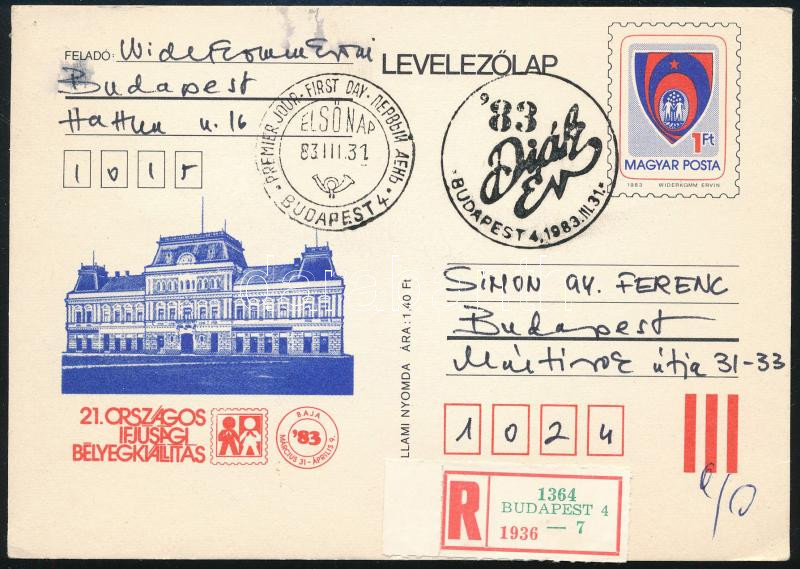 FELADÓ: Widerkomm Ervin
Budapest
Hattyu u. 16
1 0 1 5
LEVELEZŐLAP
PREMIER JOUR - FIRST DAY - ПЕРВЫЙ ДЕНЬ
ELSŐ NAP
83 III. 31
BUDAPEST 4.
'83
Diák
Év
BUDAPEST 4, 1983. III. 31.
1 Ft
MAGYAR POSTA
1983 WIDERKOMM ERVIN
21. ORSZÁGOS
IFJÚSÁGI
BÉLYEGKIÁLLÍTÁS
BAJA
'83
MÁRCIUS 31 - ÁPRILIS 9.
LLAMI NYOMDA ÁRA: 1,40 Ft
SIMON GY. FERENC
Budapest
Mártírok útja 31-33
1 0 2 4
R
1364
BUDAPEST 4
1936 — 7